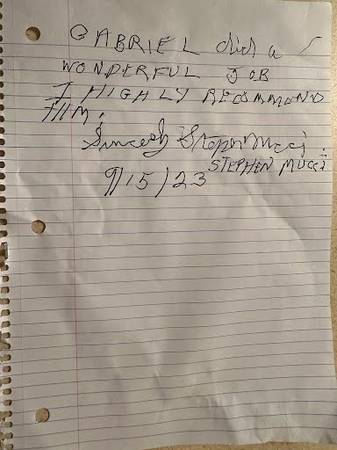 GABRIEL did a
WONDERFUL JOB
I HIGHLY RECOMMOND
HIM.
Sincerely Stephen Mucci.
STEPHEN MUCCI
9/15/23